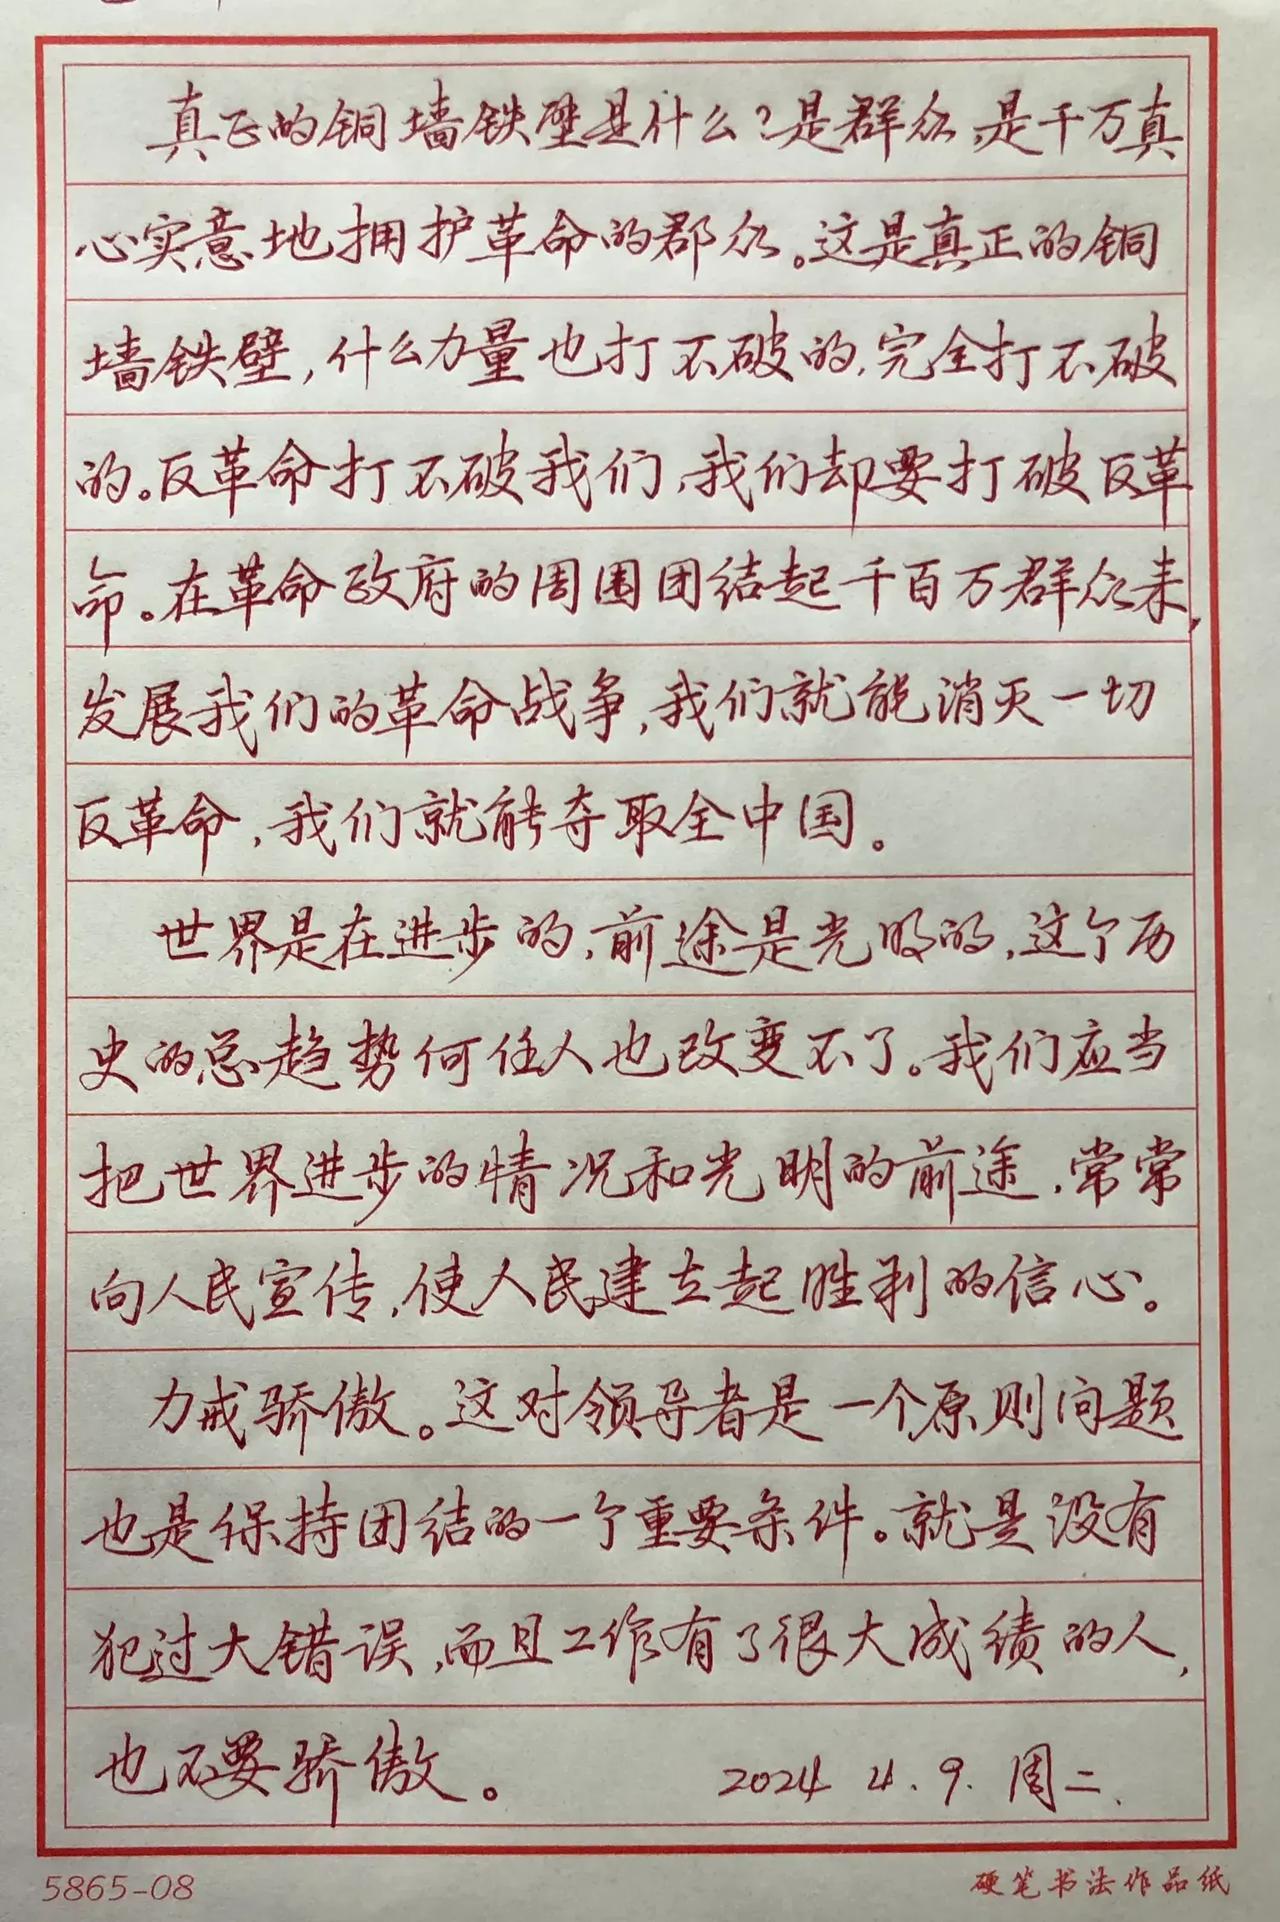 真正的铜墙铁壁是什么?是群众,是千万真
心实意地拥护革命的群众。这是真正的铜
墙铁壁,什么力量也打不破的,完全打不破
的。反革命打不破我们,我们却要打破反革
命。在革命政府的周围团结起千百万群众来,
发展我们的革命战争,我们就能消灭一切
反革命,我们就能夺取全中国。
世界是在进步的,前途是光明的,这个历
史的总趋势何任人也改变不了。我们应当
把世界进步的情况和光明的前途,常常
向人民宣传,使人民建立起胜利的信心。
力戒骄傲。这对领导者是一个原则问题
也是保持团结的一个重要条件。就是没有
犯过大错误,而且工作有了很大成绩的人,
也不要骄傲。 2024 4.9.周二.
5865-08 硬笔书法作品纸